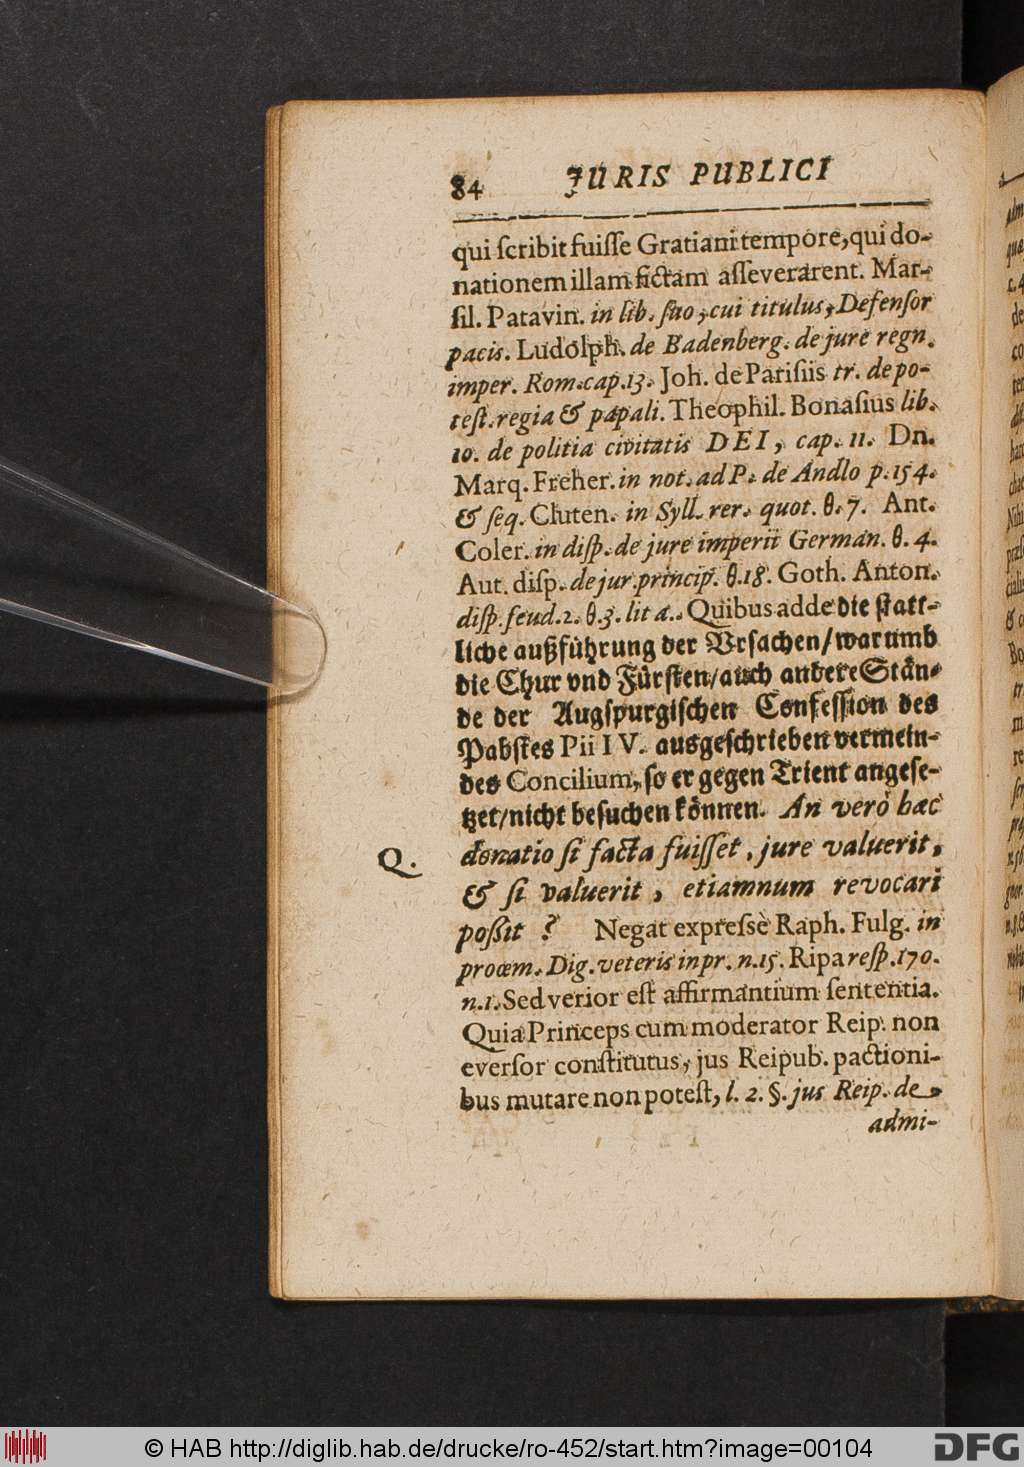 84 JURIS PUBLICI
qui ſcribit fuiſſe Gratiani tempore, qui do-
nationem illam fictam aſſeverarent. Mar-
ſil. Patavin. in lib. ſuo, cui titulus, Defenſor
pacis. Ludolph. de Badenberg. de jure regn.
imper. Rom. cap. 13. Joh. de Pariſiis tr. de po-
teſt. regia & papali. Theophil. Bonaſius lib.
10. de politia civitatis DEI, cap. 11. Dn.
Marq. Freher. in not. ad P. de Andlo p. 154.
& ſeq. Cluten. in Syll. rer. quot. θ. 7. Ant.
Coler. in diſp. de jure imperii German. θ. 4.
Aut. diſp. de jur. princip. θ. 18. Goth. Anton.
diſp. feud. 2. θ. 3. lit a. Quibus adde die ſtatt-
liche außführung der Vrſachen/warumb
die Chur vnd Fürſten/auch andere Stän-
de der Augſpurgiſchen Confeſſion des
Pabſtes Pii IV. ausgeſchrieben vermein-
des Concilium, ſo er gegen Trient angeſe-
tzet/nicht beſuchen können. An verò hæc
Q. donatio ſi facta fuiſſet, jure valuerit,
& ſi valuerit, etiamnum revocari
poßit? Negat expreſsè Raph. Fulg. in
proœm. Dig. veteris in pr. n. 15. Ripa reſp. 170.
n. 1. Sed verior eſt affirmantium ſententia.
Quia Princeps cum moderator Reip. non
everſor conſtitutus, jus Reipub. pactioni-
bus mutare non poteſt, l. 2. §. jus Reip. de
admi-
© HAB http://diglib.hab.de/drucke/ro-452/start.htm?image=00104
DFG